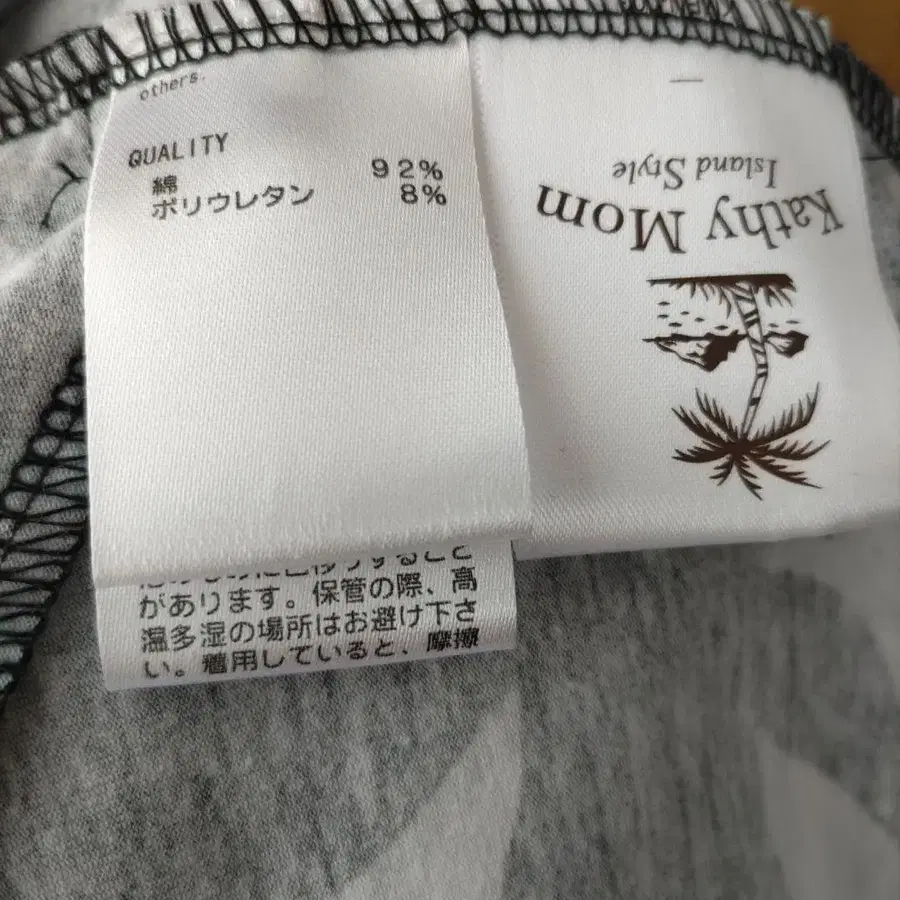 others.
QUALITY
綿 92%
ポリウレタン 8%
があります。保管の際、高
温多湿の場所はお避け下さ
い。着用していると、摩擦
Kathy Mom
Island Style